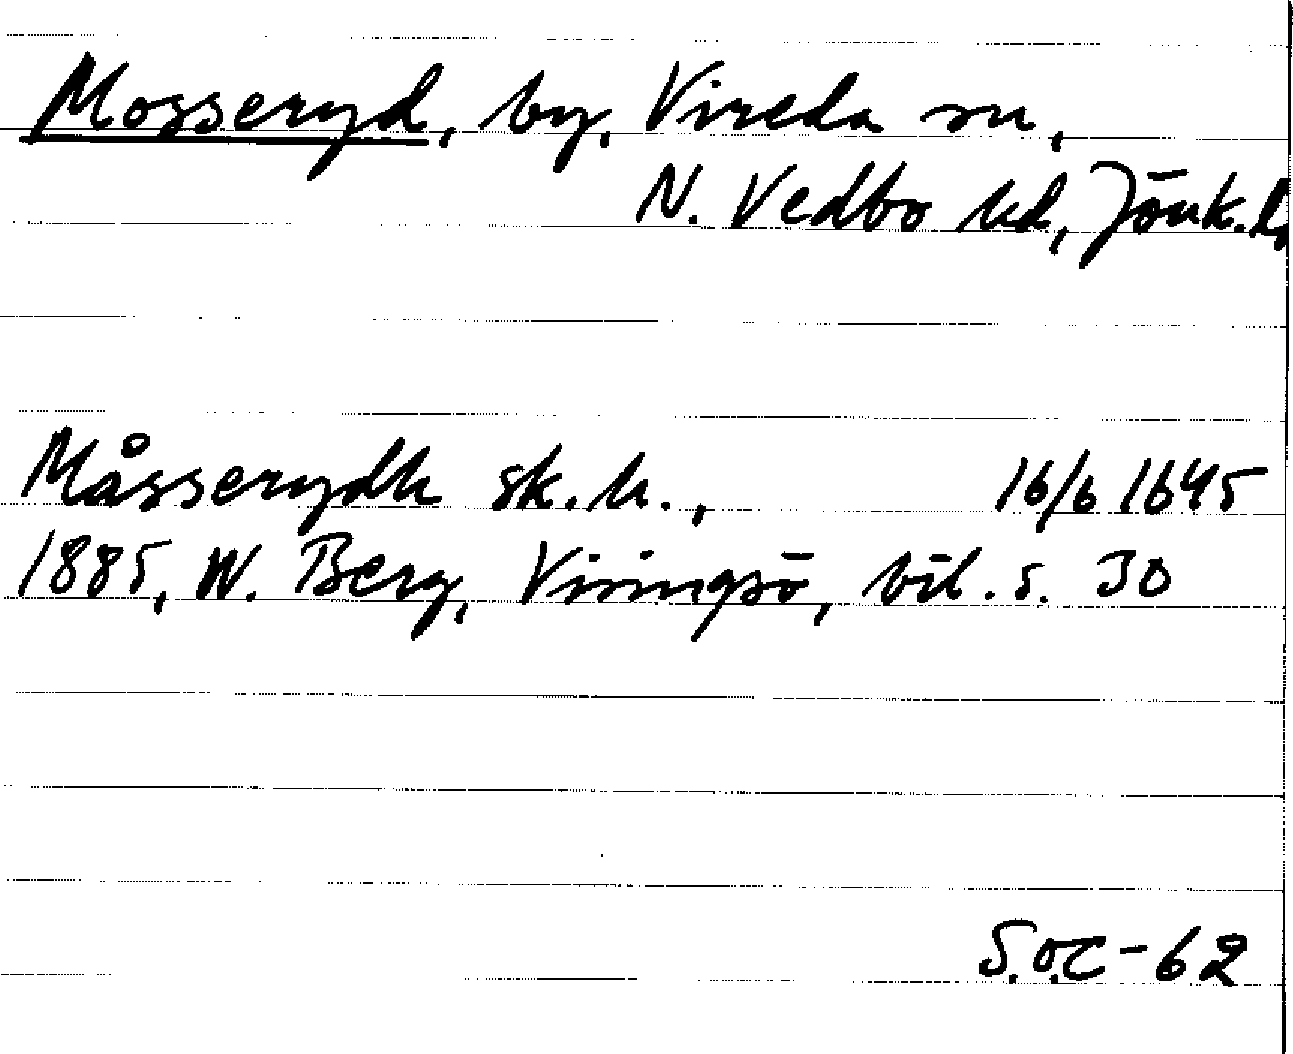 Mosseryd, by, Vireda sn,
N. Vedbo hd, Jönk. l
Måsserydh sk. h., 16/6 1645
1885, W. Berg, Visingsö, bil. s. 30
S.O.C-62